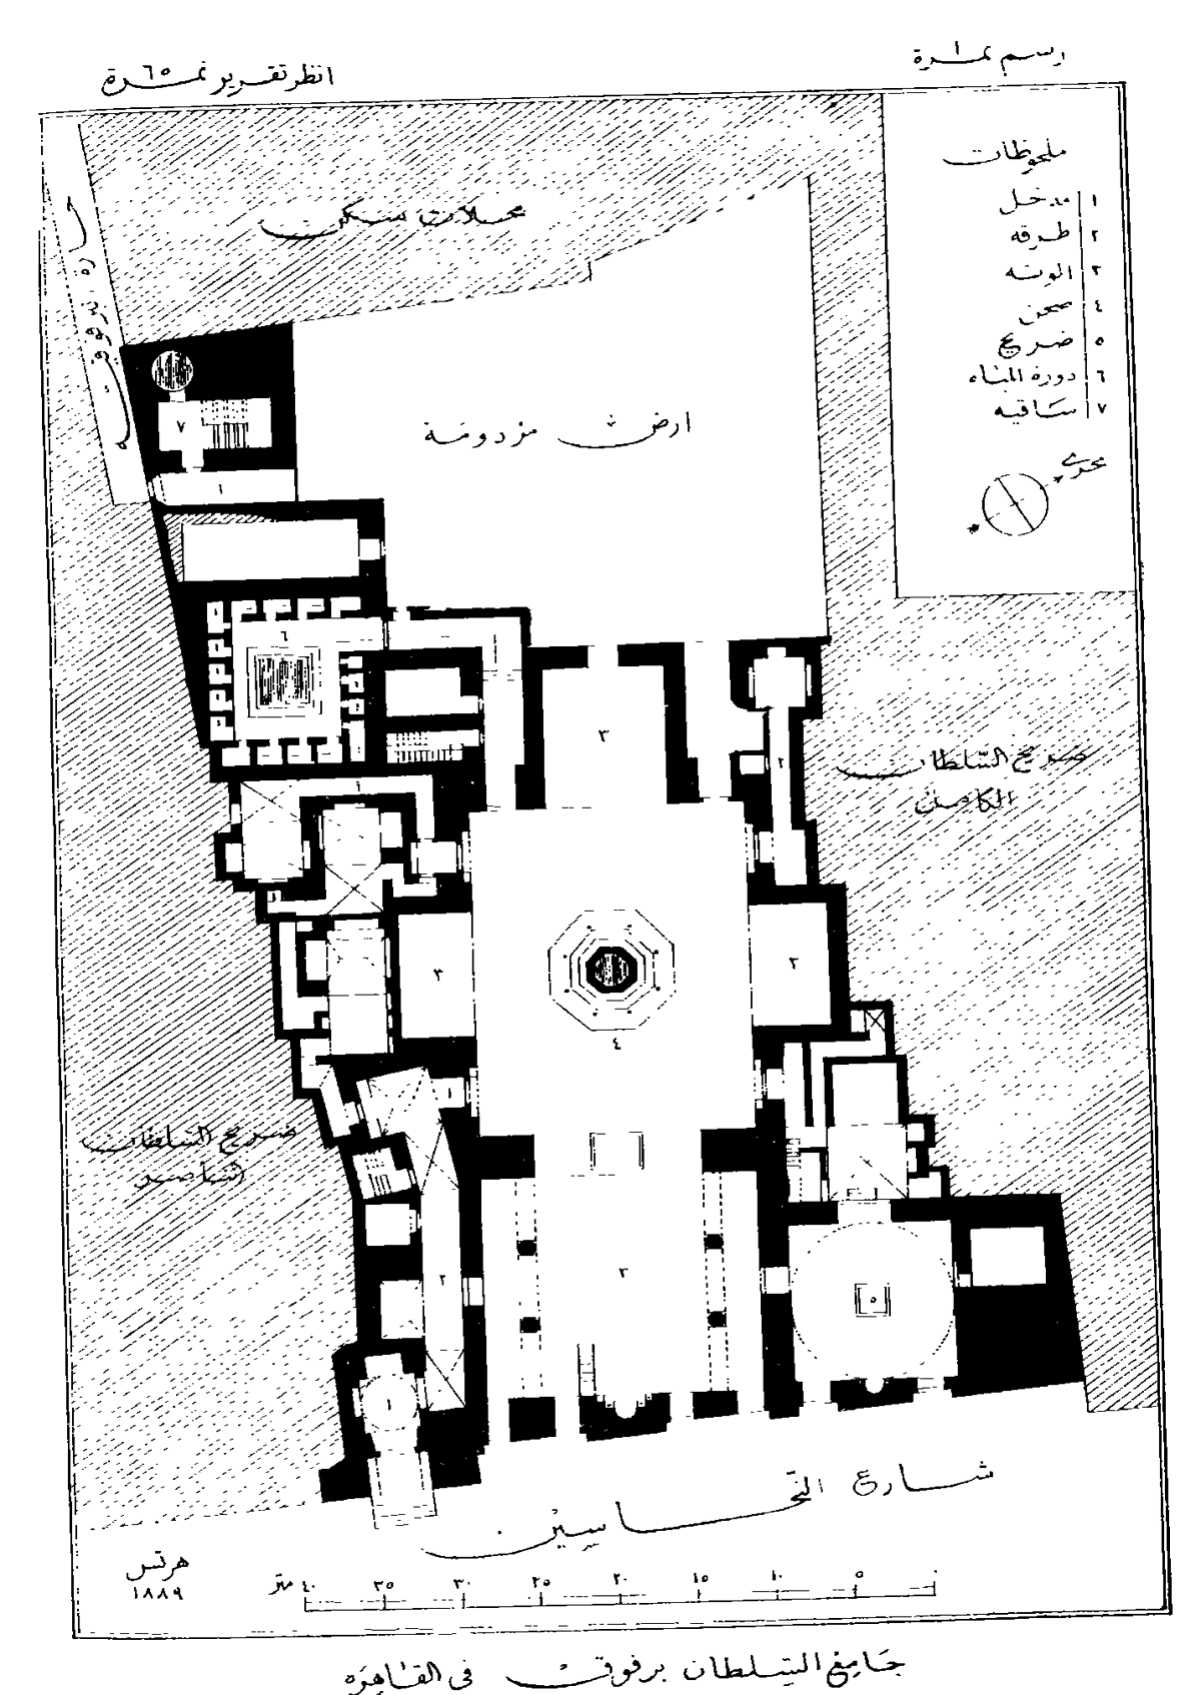 رسم نمرة ١
انظر تقرير نمرة ٦٥
ملحوظات
١ مدخل
٢ طرقه
٣ الونه
٤ صحن
٥ ضريح
٦ دورة المياه
٧ ساقيه
بحرى
محلات سكن
ارض مردومة
٧
١
٦
٣
٢
ضريح السلطان
الكامل
٣
٣
٤
ضريح السلطان
الناصر
١
٢
٣
٥
١
شارع النحاسين
هرتس
١٨٨٩
متر ٤٠ ٣٥ ٣٠ ٢٥ ٢٠ ١٥ ١٠ ٥ ٠
جامع السلطان برقوق فى القاهره